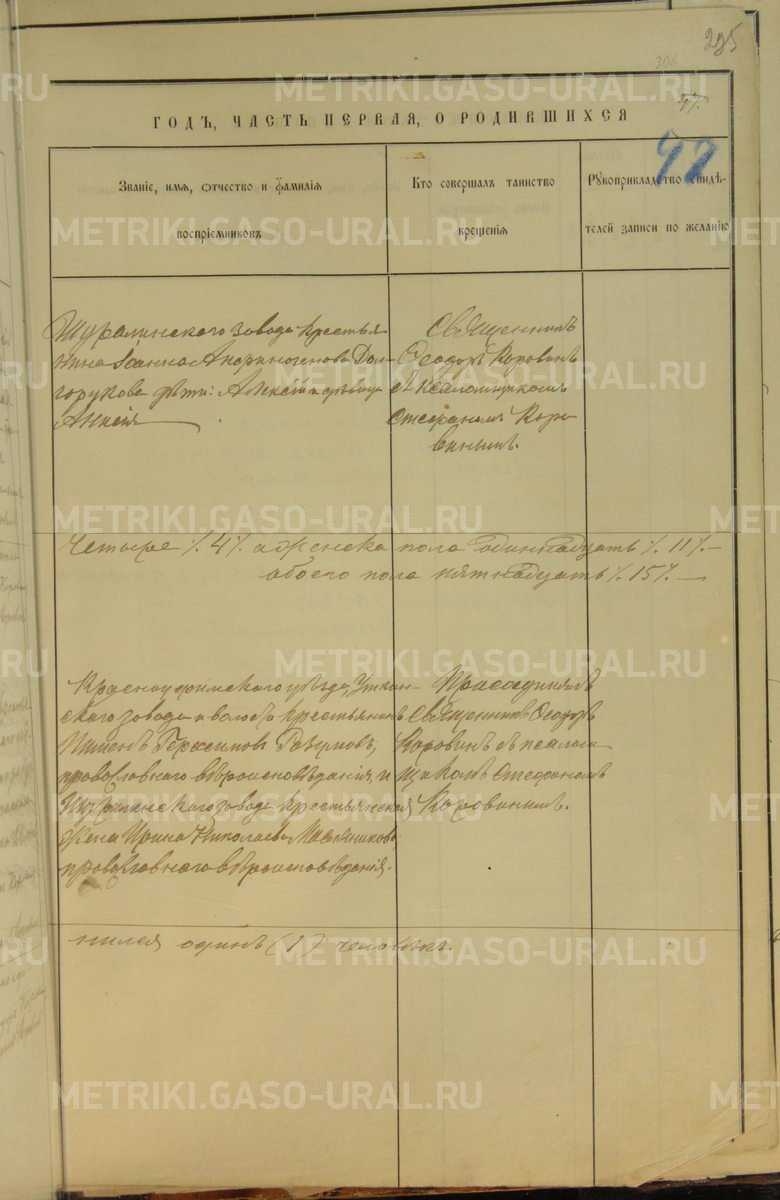 285
306
47.
42
ГОДЪ, ЧАСТЬ ПЕРВАЯ, О РОДИВШИХСЯ
Званіе, имя, отчество и фамилія воспріемниковъ
Кто совершалъ таинство крещенія
Рукоприкладство свидѣтелей записи по желанію
Шуралинскаго завода крестья-
нина Іоанна Андриногенова Дол-
горукова дѣти: Алексій и дѣвица
Анисія
Священникъ
Ѳеодоръ Коровинъ
съ псаломщикомъ
Стефаномъ Коро-
винымъ.
Четыре /. 4 /. а женска пола одиннадцать /. 11 /. —
обоего пола пятнадцать /. 15 /. —
Красноуфимскаго уѣзда, Уткин-
скаго завода и волости крестьянинъ
Пименъ Герасимовъ Разумовъ,
православнаго вѣроисповѣданія, и
завода крестьянская
жена Ирина Николаева Мясникова,
православнаго вѣроисповѣданія.
Присоединялъ
Священникъ Ѳеодоръ
Коровинъ съ псалом-
щикомъ Стефаномъ
Коровинымъ.
нился одинъ (1) человѣкъ.
METRIKI.GASO-URAL.RU